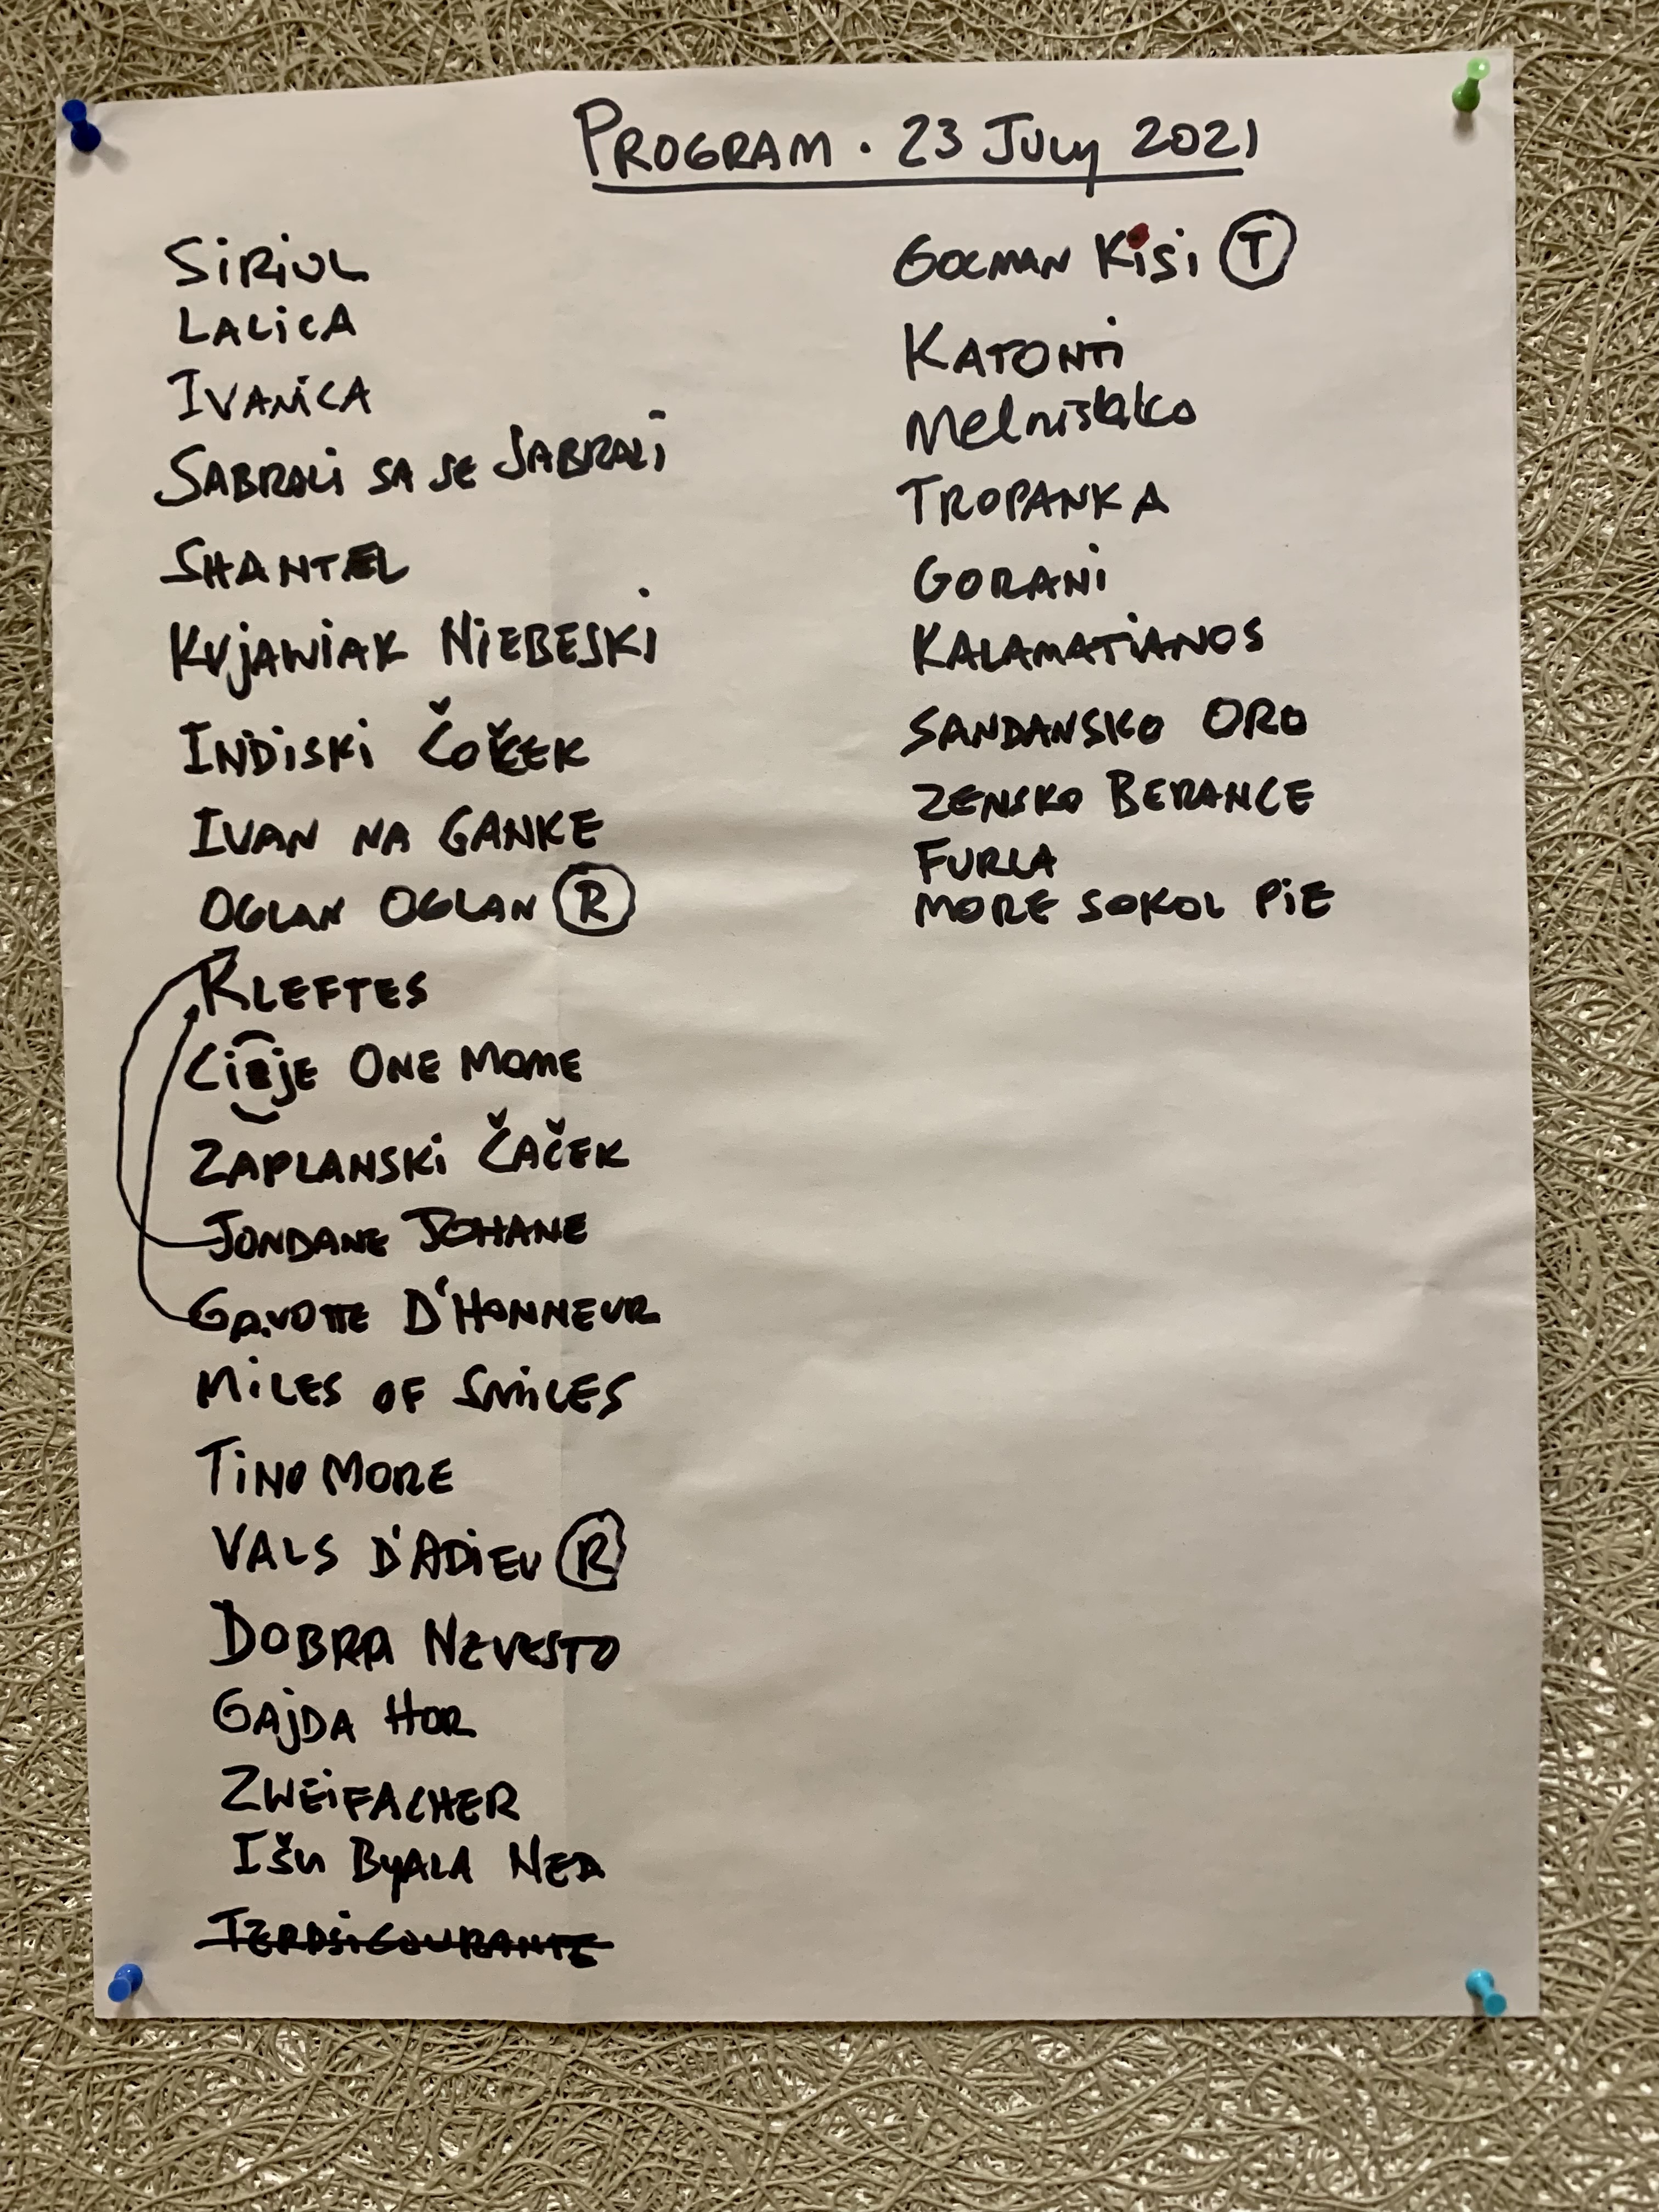 PROGRAM · 23 JULY 2021
SIRIUL
LALICA
IVANICA
SABRALI SA SE SABRALI
SHANTEL
KUJAWIAK NIEBESKI
INDISKI ČOČEK
IVAN NA GANKE
OGLAN OGLAN R
KLEFTES
JE ONE MOME
ZAPLANSKI ČAČEK
JONDANE JOHANE
GAVOTTE D'HONNEUR
MILES OF SMILES
TINO MORE
VALS D'ADIEU R
DOBRA NEVESTO
GAJDA HOR
ZWEIFACHER
IŠU BYALA NEDA
GOCMAN KISI T
KATONTI
TROPANKA
GORANI
KALAMATIANOS
SANDANSKO ORO
ZENSKO BERANCE
FURLA
MORE SOKOL PIE